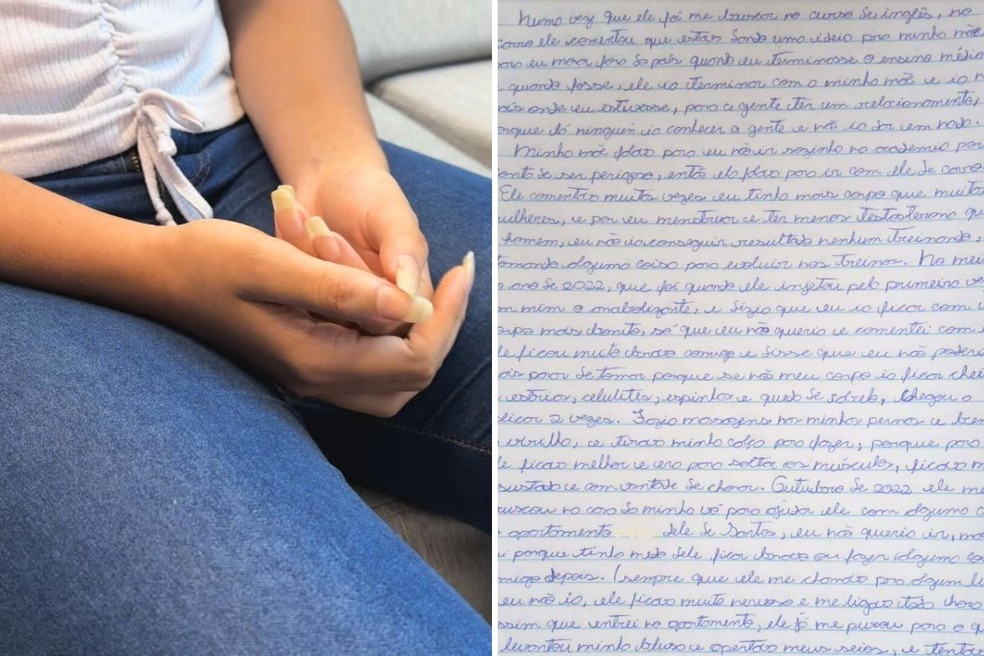 Numa vez que ele foi me buscar no curso de inglês, no
carro ele comentou que estar dando uma ideia para minha mãe
para eu morar fora do país quando eu terminasse o ensino médio
quando fosse, ele ia terminar com a minha mãe e ia
país onde eu estivesse, para a gente ter um relacionamento,
porque lá ninguém ia conhecer a gente e não ia dar em nada.
Minha mãe falava para eu não ir sozinha na academia
de ser perigoso, então ele falava para ir com ele de carro.
Ele comentava muitas vezes eu tinha mais corpo que muitas
mulheres, e por eu menstruar e ter menos testosterona
homem, eu não ia conseguir resultado nenhum treinando,
tomando alguma coisa para evoluir nos treinos. No
ano de 2022, que foi quando ele injetou pela primeira vez
em mim o anabolizante, e dizia que eu ia ficar com
corpo mais bonito, só que eu não queria e comentei com
ele ficou muito bravo comigo e disse que eu não poderia
parar de tomar porque se não meu corpo ia ficar
estrias, celulites, espinhas e queda de cabelo, chegou a
aplicar 2 vezes. Fazia massagens na minha perna e
virilha, e tirava minha calça para fazer, porque para
ele ficava melhor e era para soltar os músculos, ficava
assustada e com vontade de chorar. Outubro de 2022 ele me
buscou na casa da minha vó para ajudar ele com alguma
apartamento dele de Santos, eu não queria ir,
porque tinha medo dele ficar bravo ou fazer alguma
comigo depois. (sempre que ele me chamava para algum
eu não ia, ele ficava muito nervoso e me ligava toda hora
assim que entrei no apartamento, ele já me puxou para o
levantou minha blusa e apertou meus seios, e